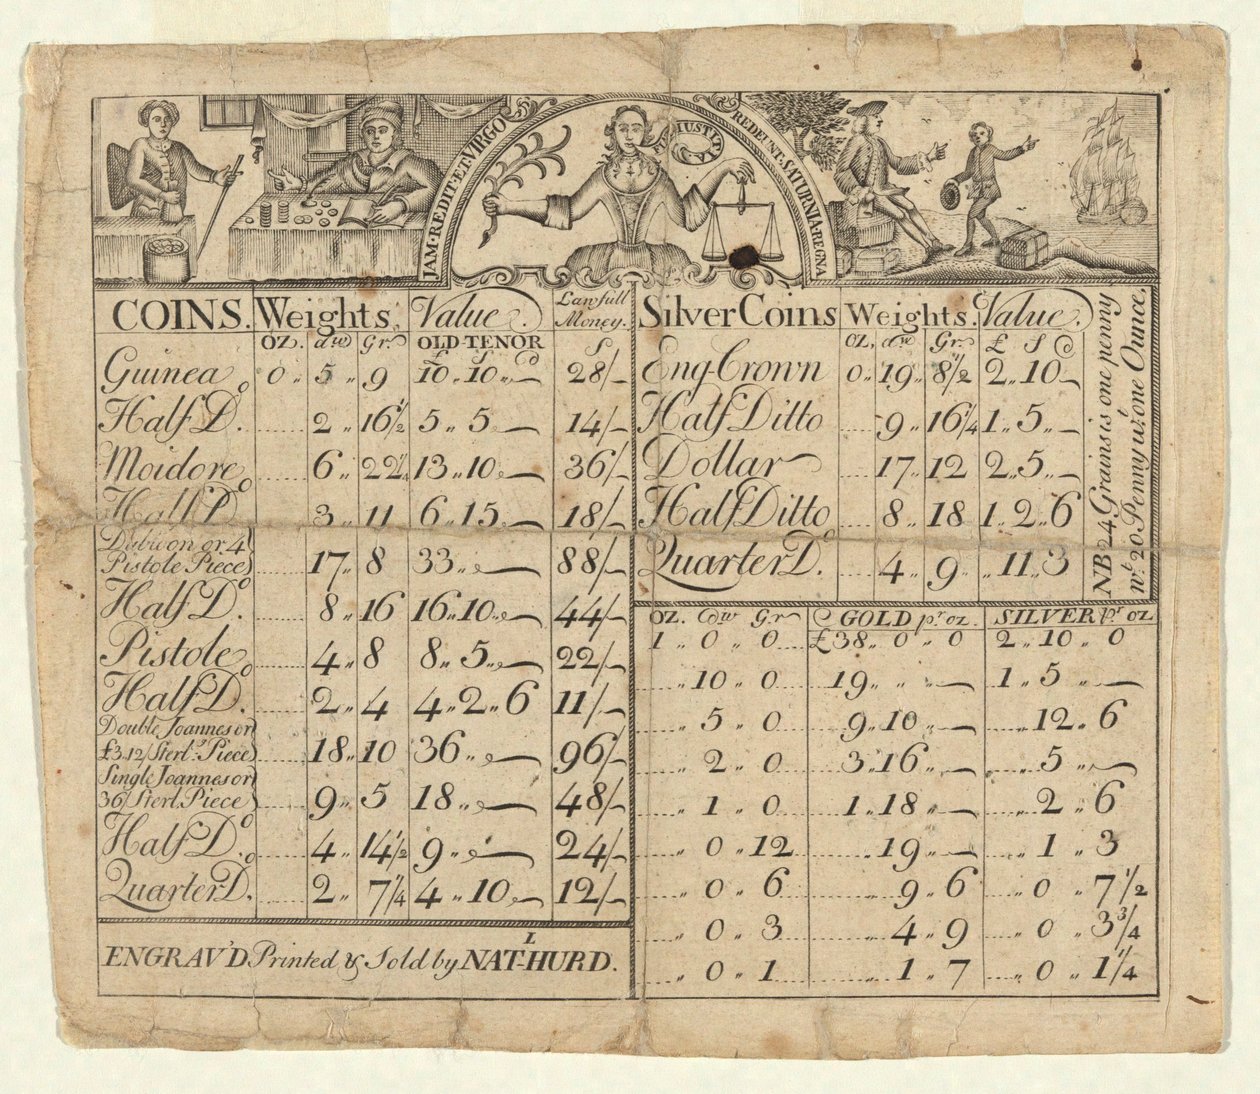 JAM·REDIT·ET·VIRGO
JUSTITIA
REDEUNT·SATURNIA·REGNA
COINS. Weights. Value. Lawfull Money.
OZ. dw Gr. OLD TENOR
£ S D S
Guinea 0 „ 5 „ 9 10 „ 10 „ — 28/-
Half Do. 2 „ 16 1/2 5 „ 5 — 14/-
Moidore 6 „ 22 1/4 13 „ 10 — 36/-
Half Do 3 „ 11 6 „ 15 — 18/-
Dubloon or 4
Pistole Piece 17 „ 8 33 „ — 88/-
Half Do. 8 „ 16 16 „ 10 — 44/-
Pistole 4 „ 8 8 „ 5 „ — 22/-
Half Do. 2 „ 4 4 „ 2 „ 6 11/-
Double Joannes or
£3,12/Sterl.g Piece 18 „ 10 36 „ — 96/-
Single Joannes or
36/Sterl. Piece 9 „ 5 18 „ — 48/-
Half Do. 4 „ 14 1/2 9 „ — 24/-
Quarter Do. 2 „ 7 1/4 4 „ 10 — 12/-
ENGRAV'D Printed & Sold by NATL HURD.
Silver Coins Weights. Value.
OZ, dw Gr. £ S D
Eng Crown 0 „ 19 „ 8 1/2 2 „ 10 —
Half Ditto 9 „ 16 1/4 1 „ 5 „ —
Dollar 17 „ 12 2 „ 5 —
Half Ditto 8 „ 18 1 „ 2 „ 6
Quarter Do. 4 „ 9 „ 11 „ 3
NB 24 Grans is one penny
wt. 20 Penny wt. one Ounce.
OZ. dw Gr GOLD pr oz. SILVER pr oz
1 „ 0 „ 0 £38 „ 0 „ 0 2 „ 10 „ 0
„ 10 „ 0 19 „ „ — 1 „ 5 „ —
„ 5 „ 0 9 „ 10 „ — „ 12 „ 6
„ 2 „ 0 3 „ 16 „ — „ 5 „ —
„ 1 „ 0 1 „ 18 „ — „ 2 „ 6
„ 0 „ 12 „ 19 „ — „ 1 „ 3
„ 0 „ 6 „ 9 „ 6 „ 0 „ 7 1/2
„ 0 „ 3 „ 4 „ 9 „ 0 „ 3 3/4
„ 0 „ 1 „ 1 „ 7 „ 0 „ 1 1/4